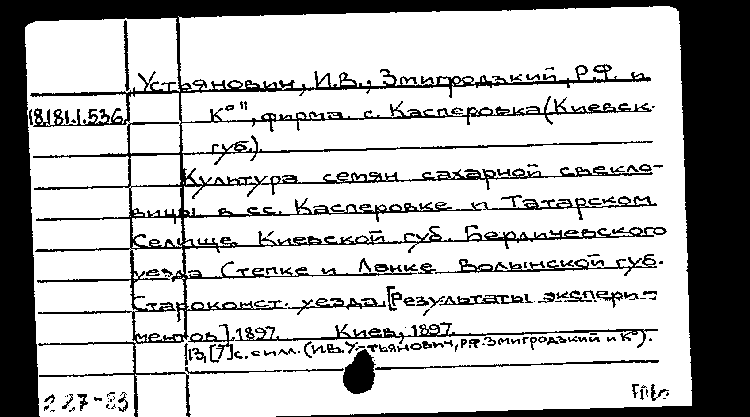 „Устьянович, И.В., Змигродзкий, Р.Ф. и
18.181.1.536. К°", фирма. с. Касперовка (Киевск.
губ.).
Культура семян сахарной свекло-
вицы в сс. Касперовке и Татарском
Селище, Киевской губ. Бердичевского
уезда Степке и Ленке Волынской губ.
Староконст. уезда. [Результаты экспери-
ментов]. 1897. Киев, 1897.
13, [7] с. с илл. (И.В. Устьянович, Р.Ф. Змигродзкий и К°).
227-83